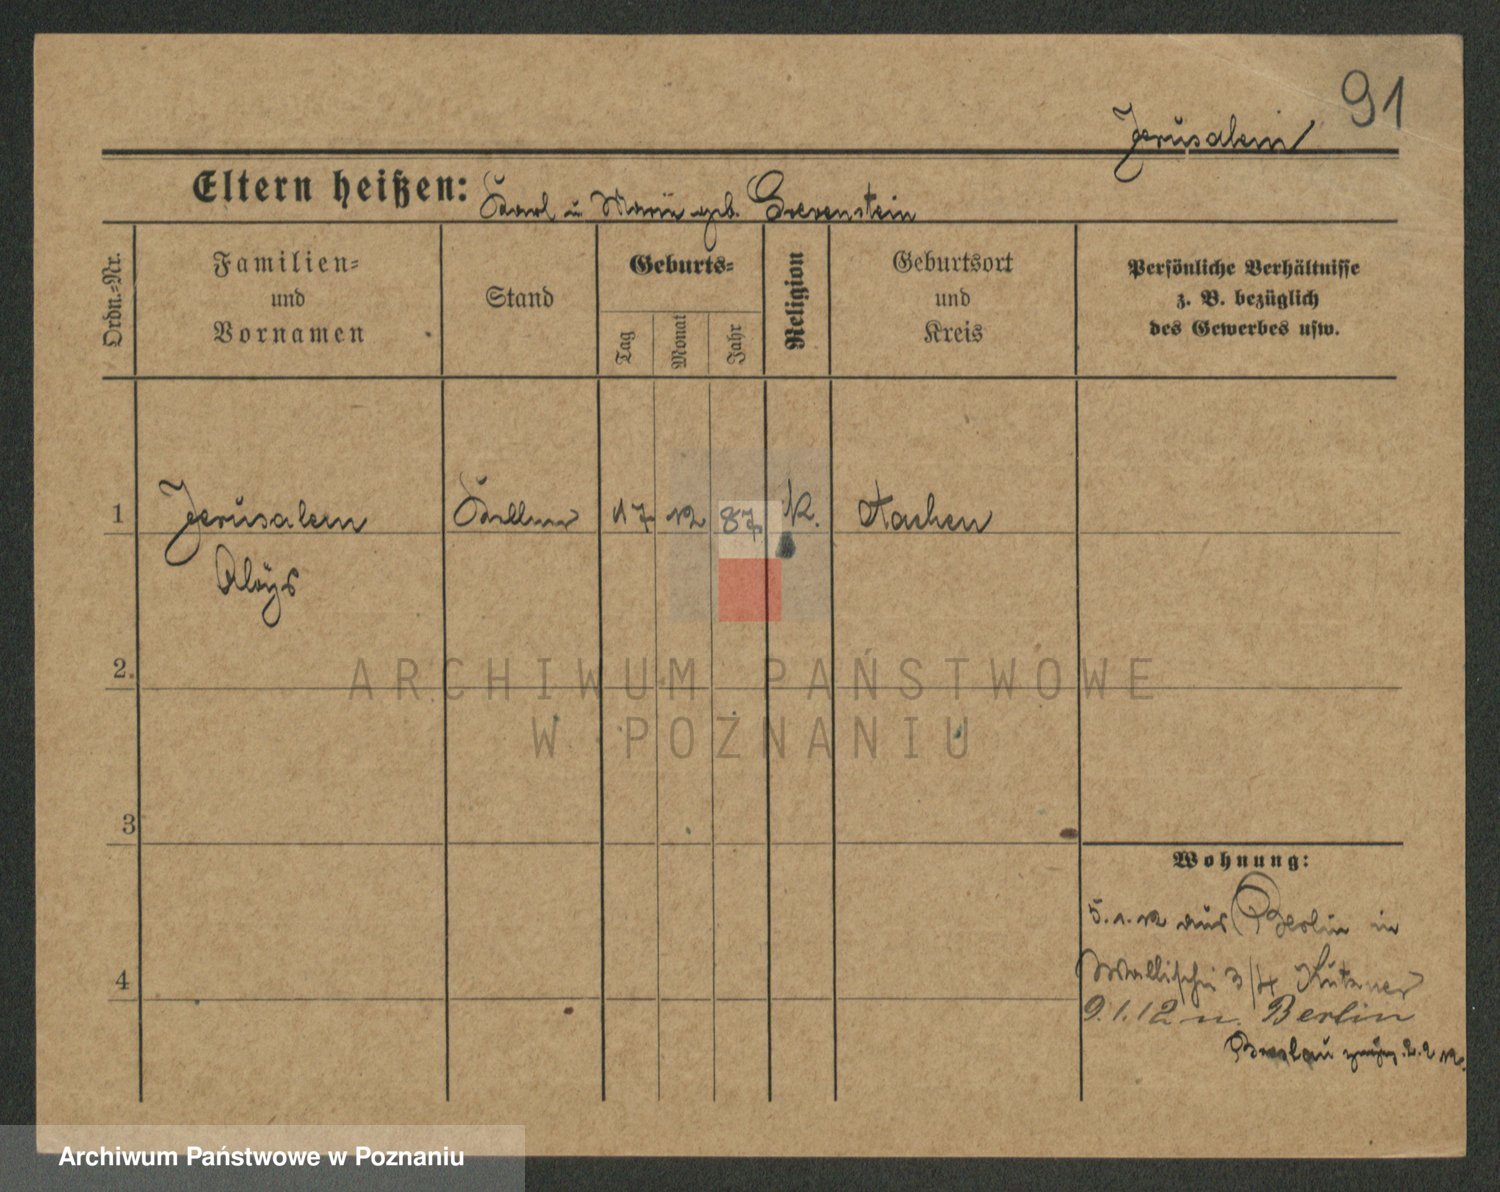 91
Jerusalem
Eltern heißen: Karl u Marie geb. Grevenstein
Ordn.-Nr.
Familien-
und
Vornamen
Stand
Geburts-
Tag
Monat
Jahr
Religion
Geburtsort
und
Kreis
Persönliche Verhältnisse
z. B. bezüglich
des Gewerbes usw.
1 Jerusalem Kellner 17 12 87 K. Aachen
Aloys
2.
3
4
ARCHIWUM PAŃSTWOWE
W POZNANIU
Wohnung:
5.1.12 aus Berlin in
Wallischei 3/4 Kutzner
9.1.12 n. Berlin
Breslau 2.2 12.
Archiwum Państwowe w Poznaniu